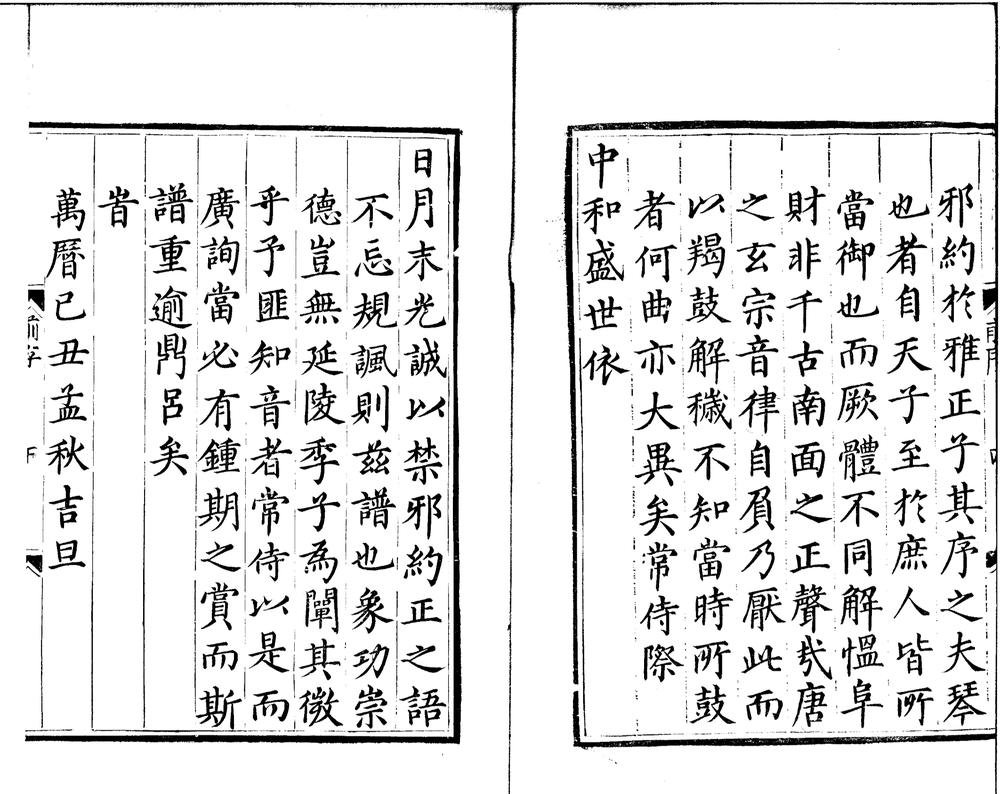 邪約於雅正子其序之夫琴
也者自天子至於庶人皆所
當御也而厥體不同解慍阜
財非千古南面之正聲㢤唐
之玄宗音律自負乃厭此而
以羯鼓解穢不知當時所鼓
者何曲亦大異矣常侍際
中和盛世依
日月末光誠以禁邪約正之語
不忘規諷則茲譜也象功崇
德豈無延陵季子為闡其微
乎予匪知音者常侍以是而
廣詢當必有鍾期之賞而斯
譜重逾鼎呂矣
旹
萬曆己丑孟秋吉旦